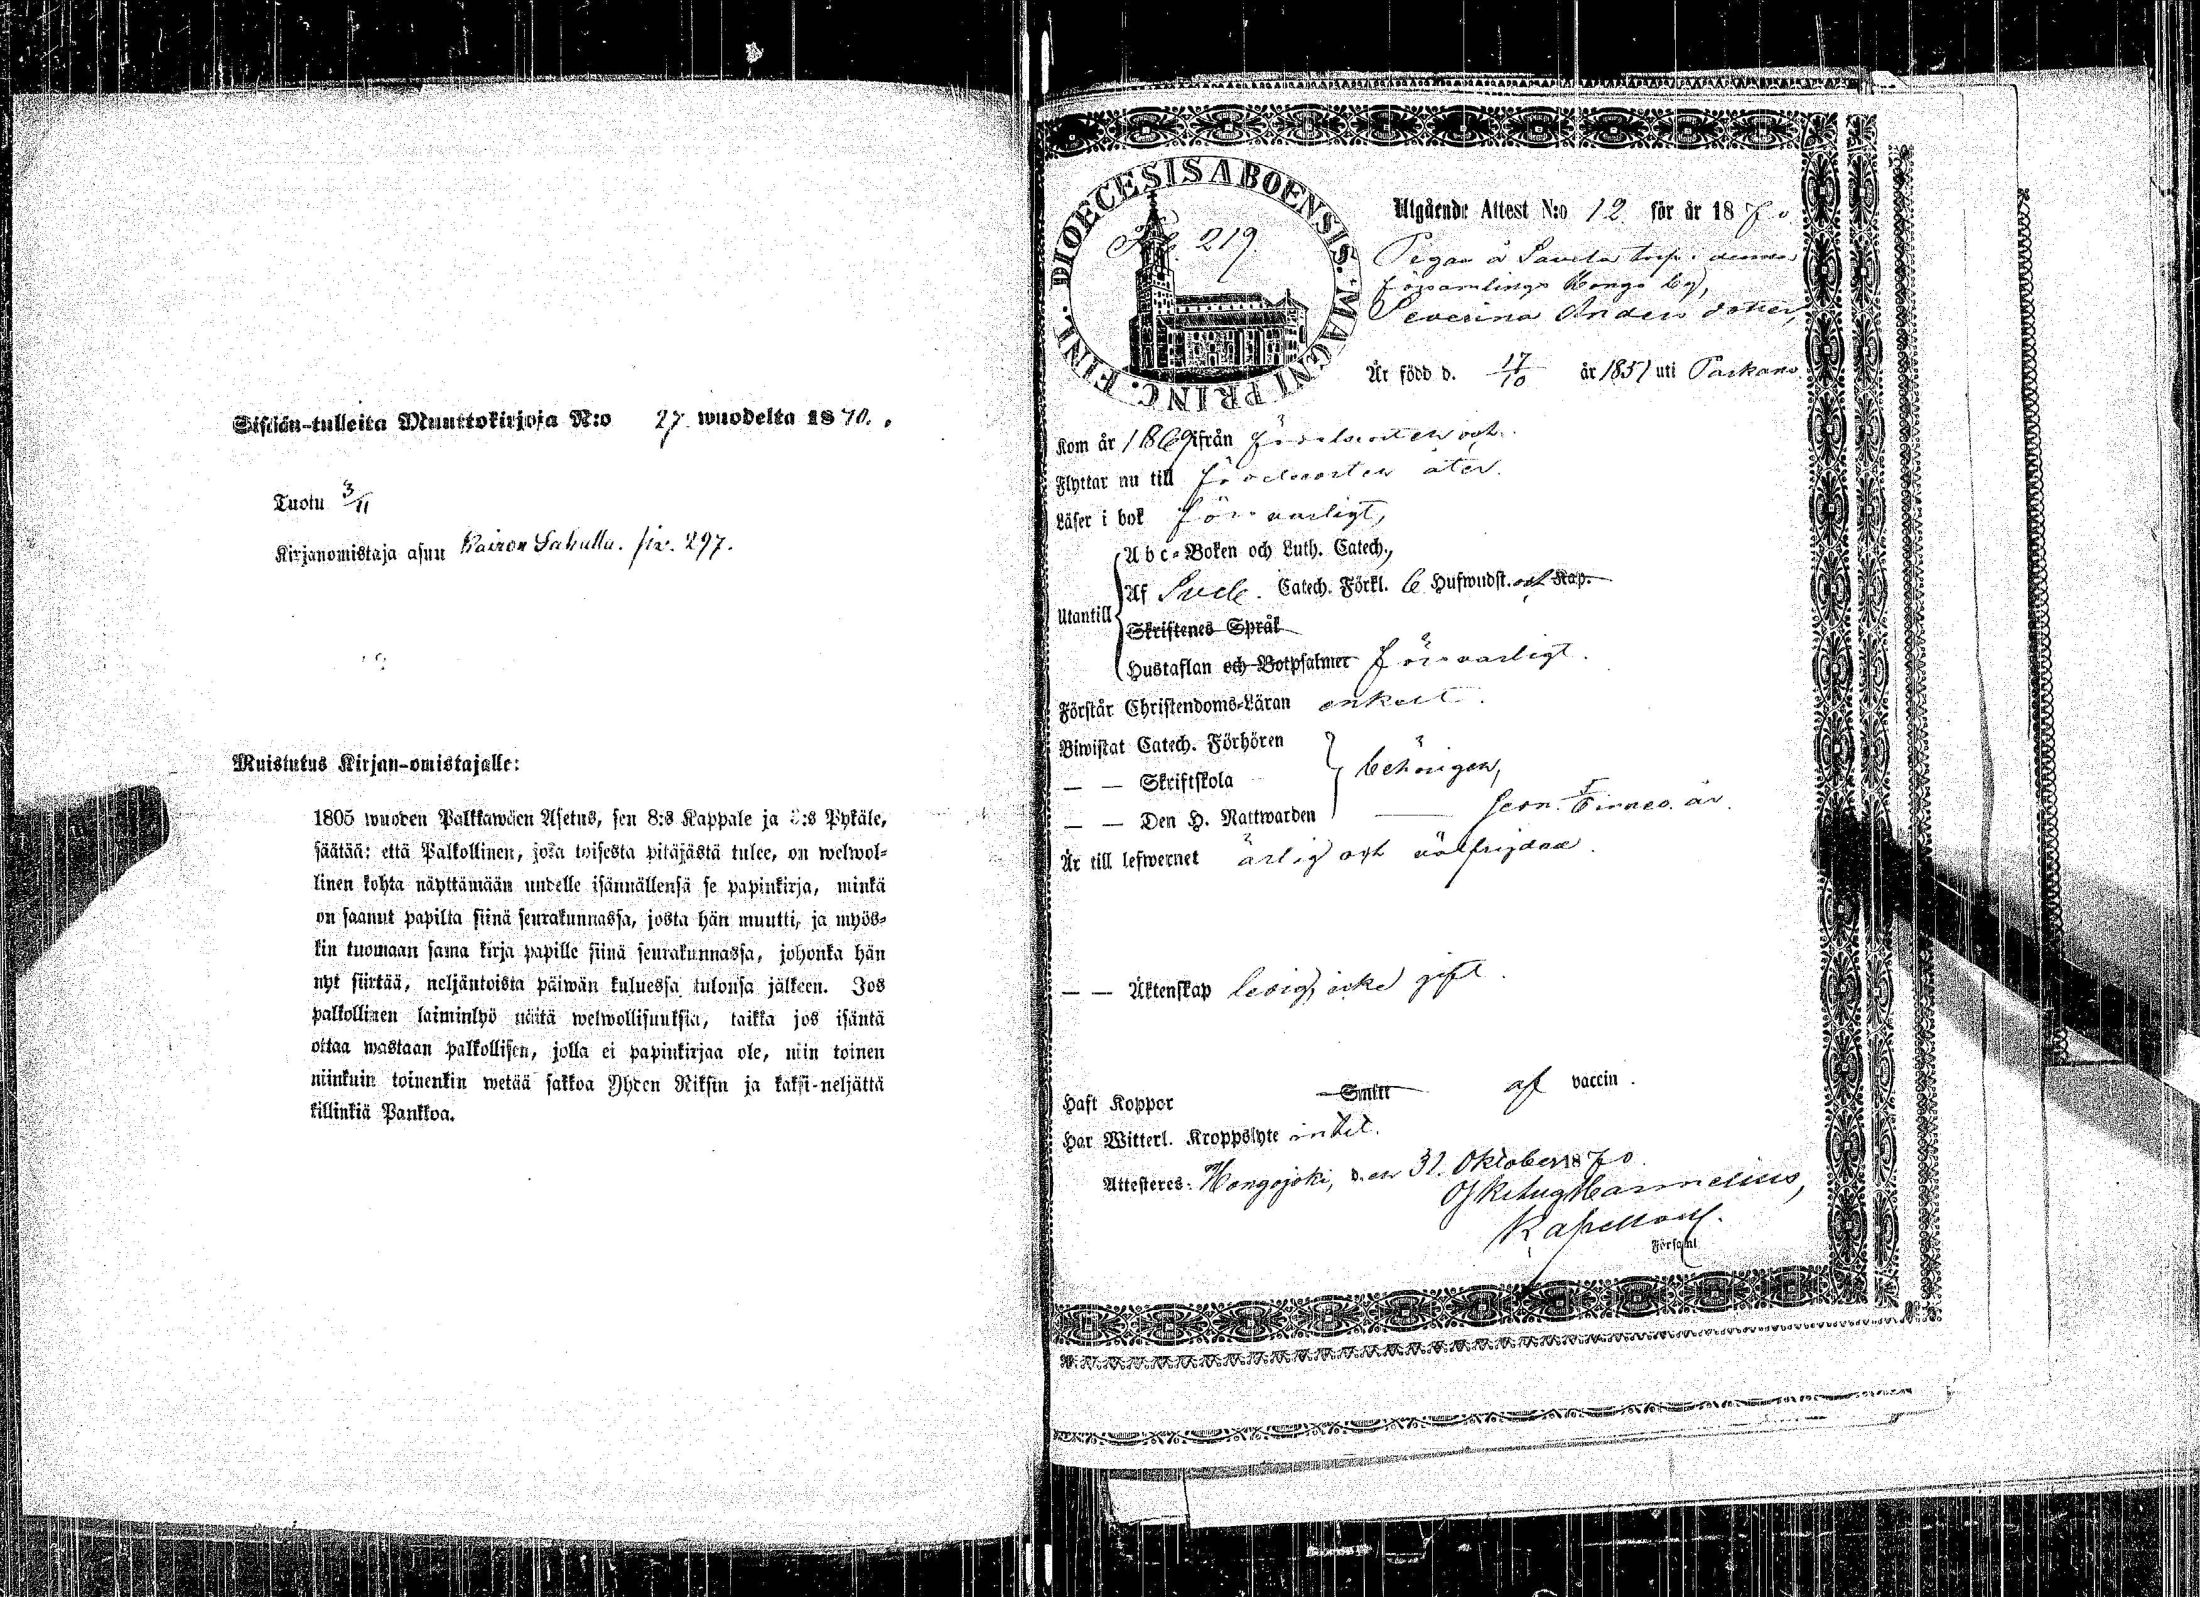 Sisään-tulleita Muuttokirjoja N:o 27 wuodelta 1870.
Tuotu 3/11
Kirjanomistaja asuu Kairon Sahulla. siv. 297.
Muistutus Kirjan-omistajalle:
1805 wuoden Palkkawäen Asetus, sen 8:s Kappale ja :s Pykäle,
säätää: että Palkollinen, joka toisesta pitäjästä tulee, on welwol-
linen kohta näyttämään uudelle isännällensä se papinkirja, minkä
on saanut papilta siinä seurakunnassa, josta hän muutti, ja myös-
kin tuomaan sama kirja papille siinä seurakunnassa, johonka hän
nyt siirtää, neljäntoista päiwän kuluessa tulonsa jälkeen. Jos
palkollinen laiminlyö näitä welwollisuuksia, taikka jos isäntä
ottaa wastaan palkollisen, jolla ei papinkirjaa ole, niin toinen
niinkuin toinenkin wetää sakkoa Yhden Riksin ja kaksi-neljättä
killinkiä Pankkoa.
DIOECESIS ABOENSIS. MAGNI PRINC. FINL.
219
Utgående Attest N:o 12 för år 1870
Pigan å Savela torp i denna
församlings Kongo by,
Severina Anders dotter,
Är född d. 17/10 år 1851 uti Parkano.
Kom år 1869 ifrån förelsorten och
Flyttar nu till förelsorten åter.
Läser i bok försvarligt,
Utantill
Abc-Boken och Luth. Catech.,
Af Sveb. Catech. Förkl. 6 Hufwudst. och Kap.
Skriftenes Språk
Hustaflan och Botpsalmer försvarligt.
Förstår Christendoms-Läran enkelt.
Biwistat Catech. Förhören
— — Skriftskola behörigen,
— — Den H. Nattwarden
Är till lefwernet ärlig och välfrejdad.
— — Äktenskap ledig, icke gift.
Haft Koppor Smitt af vaccin.
Har Witterl. Kroppslyte intet.
Attesteres: Hongojoki, den 31. Oktober 1870.
Kapellan.
Församl